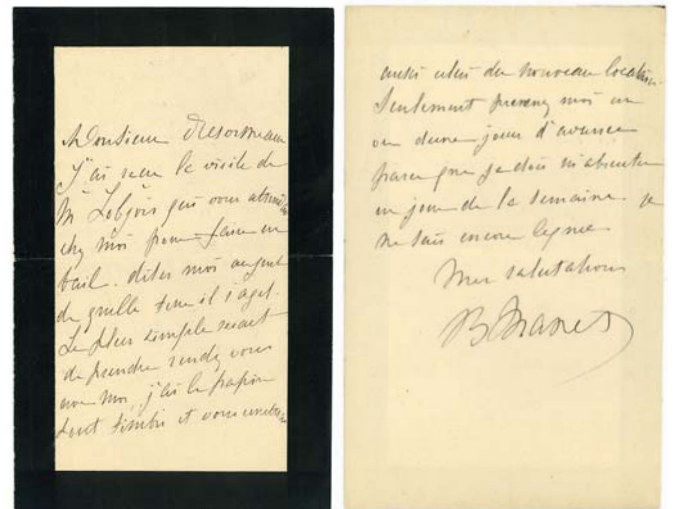 Monsieur Desormeau
J'ai reçu la visite de
Mr Lobjois qui vous attendait
chez moi pour faire un
bail. dites moi
de quelle il s'agit.
Le plus simple serait
de prendre rendez vous
avec moi, j'ai le papier
tout timbré et vous
aussi celui du nouveau locataire
Seulement prévenez moi un
ou deux jours d'avance
parce que je dois m'absenter
un jour de la semaine. je
ne sais encore lequel
Mes salutations
B Manet